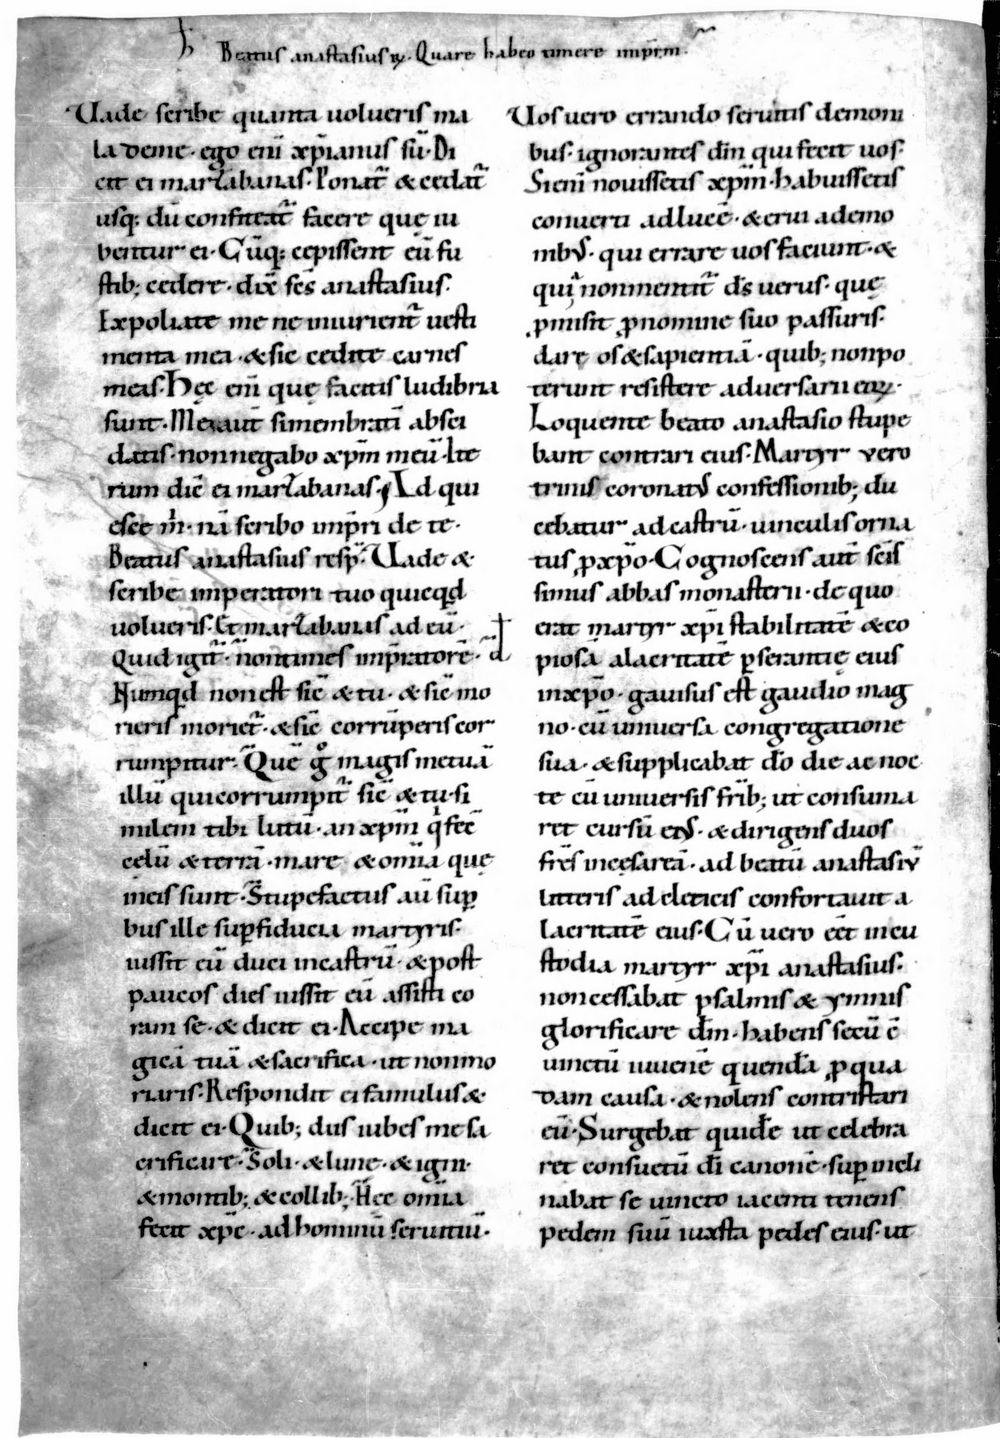 h Beatus anastasius rꝫ. Quare habeo timere impr̄m.
Uade scribe quanta uolueris ma
la de me. ego eni᷑ xp̄ianus sū. Di
cit ei marzabanas. Ponat᷑ & cedat᷑
usq; dū confiteat᷑ facere quę iu
bentur ei. Cūq; cepissent eū fu
stib; cedere. dix̄ sc̄s anastasius.
Expoliate me ne iniurient᷑ uesti
menta mea. & sic cedite carnes
meas. Hęc eni᷑ quę facitis ludibria
sunt. Me aut̄ si membrati᷑ absci
datis. non negabo xp̄m meū. Ite
rum dic̄ ei marzabanas. Ad qui
esce m̊. nā scribo imp̄ri de te.
Beatus anastasius resp̄. Uade &
scribe imperatori tuo quicq̄d
uolueris. Et marzabanas ad eū.
Quid igit᷑. non times imp̄ratorē. d̄
Nunq̄d non est sic̄ & tu. & sic̄ mo
rieris moriet᷑. & sic̄ corrūperis cor
rumpitur. Quē g̊ magis metuā
illū qui corrumpit᷑ sic̄ & tu. si
milem tibi lutū. an xp̄m q̇ fec̄
celū & terrā. mare & om̄ia quę
in eis sunt. Stupefactus aū suꝑ
bus ille suꝑ fiducia martyris.
iussit eū duci in castrū. & post
paucos dies iussit eū assisti co
ram se. & dicit ei. Accipe ma
gicā tuā & sacrifica. ut non mo
riaris. Respondit ei famulus &
dicit ei. Quib; dus iubes me sa
crificare. Soli. & lunę. & igni.
& montib; & collib; Hęc om̄ia
fecit xp̄c. ad hominū seruitiū.
Uos uero errando seruitis demoni
bus. ignorantes dn̄m qui fecit uos.
Si eni᷑ nouissetis xp̄m. habuissetis
conuerti ad lucē. & erui a demo
nibꝰ. qui errare uos faciunt. &
qui non mentit᷑ d̄s uerus. quę
ꝓmisit ꝓ nomine suo passuris.
dare os & sapientiā. quib; non po
terunt resistere aduersarii eoꝝ.
Loquente beato anastasio stupe
bant contrari eius. Martyr uero
trinis coronatꝰ confessionib; du
cebatur ad castrū. uinculis orna
tus ꝓ xp̄o. Cognoscens aut̄ sc̄is
simus abbas monasterii. de quo
erat martyr xp̄i stabilitatē & co
piosā alacritatē ꝑserantię eius
in xp̄o. gauisus est gaudio mag
no. cū uniuersa congregatione
sua. & supplicabat dō die ac noc
te cū uniuersis fr̄ib; ut consuma
ret cursū eiꝰ. & dirigens duos
fr̄es in cęsareā. ad beatū anastasiū
litteris adeleticis confortauit a
lacritatē eius. Cū uero eēt in cu
stodia martyr xp̄i anastasius.
non cessabat psalmis & ymnis
glorificare dn̄m. habens secū ē
uinctū iuuenē quendā ꝓ qua
dam causa. & nolens contristari
eū. Surgebat quidē ut celebra
ret consuetū dī canonē. suꝑ incli
nabat se uincto iacenti tenens
pedem suū iuxta pedes eius. ut